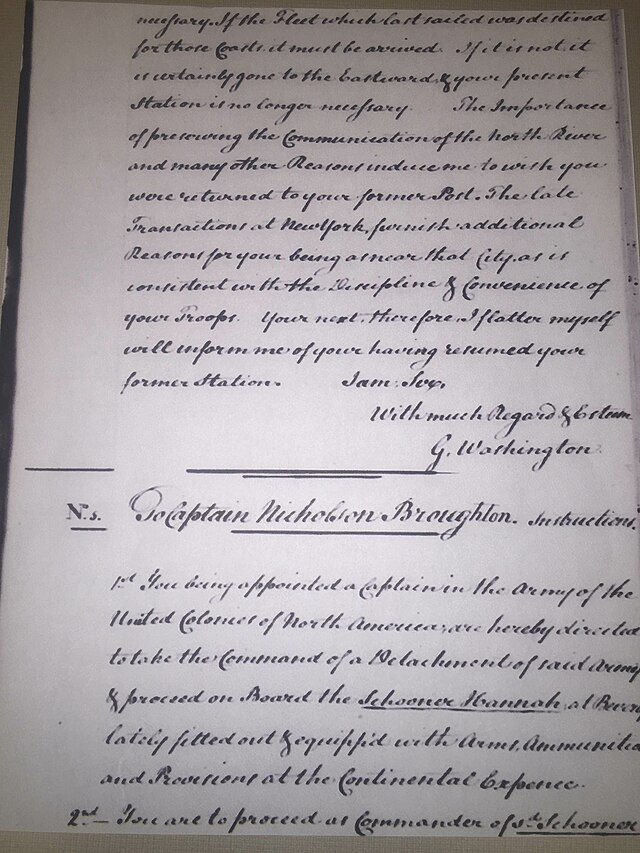 necessary. If the Fleet which last sailed was destined
for those Coasts it must be arrived. If it is not, it
is certainly gone to the Eastward, & your present
Station is no longer necessary. The Importance
of preserving the Communication of the North River
and many other Reasons induce me to wish you
were returned to your former Post. The late
Transactions at New York, furnish additional
Reasons for your being as near that City, as is
consistent with the Discipline & Convenience of
your Troops. Your next, therefore, I flatter myself
will inform me of your having resumed your
former Station. I am, Sir,
With much Regard & Esteem
G. Washington.
To Captain Nicholson Broughton. Instructions.
1st You being appointed a Captain in the Army of the
United Colonies of North America, are hereby directed
to take the Command of a Detachment of said Army
& proceed on Board the Schooner Hannah, at
lately fitted out & equipp'd with Arms, Ammunitio
and Provisions at the Continental Expence.
2nd — You are to proceed as Commander of sd. Schooner